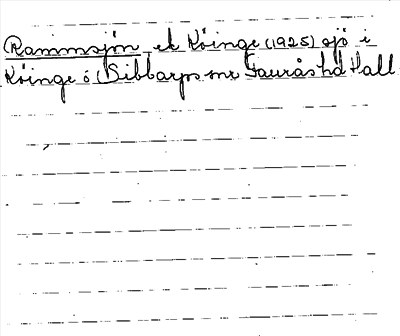 Rammsjön ek Köinge (1925) sjö i
Köinge ö (Sibbarps sn Fauråshd Hall